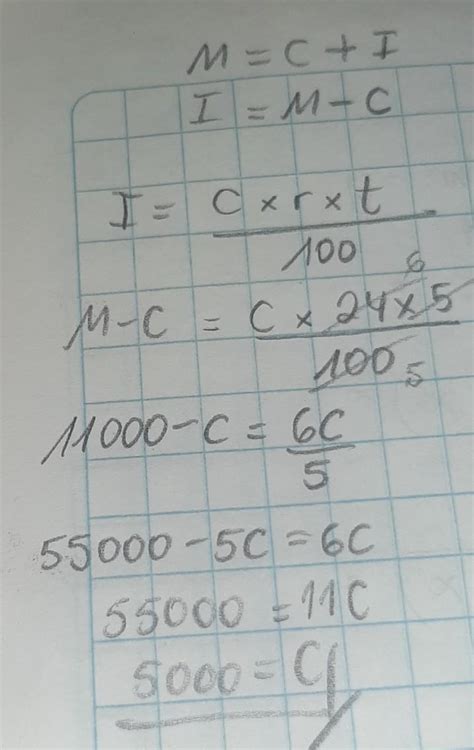 M = C + I
I = M - C
I = C × r × t / 100
M - C = C × 24 × 5 / 100 6 5
11000 - C = 6C / 5
55000 - 5C = 6C
55000 = 11C
5000 = C